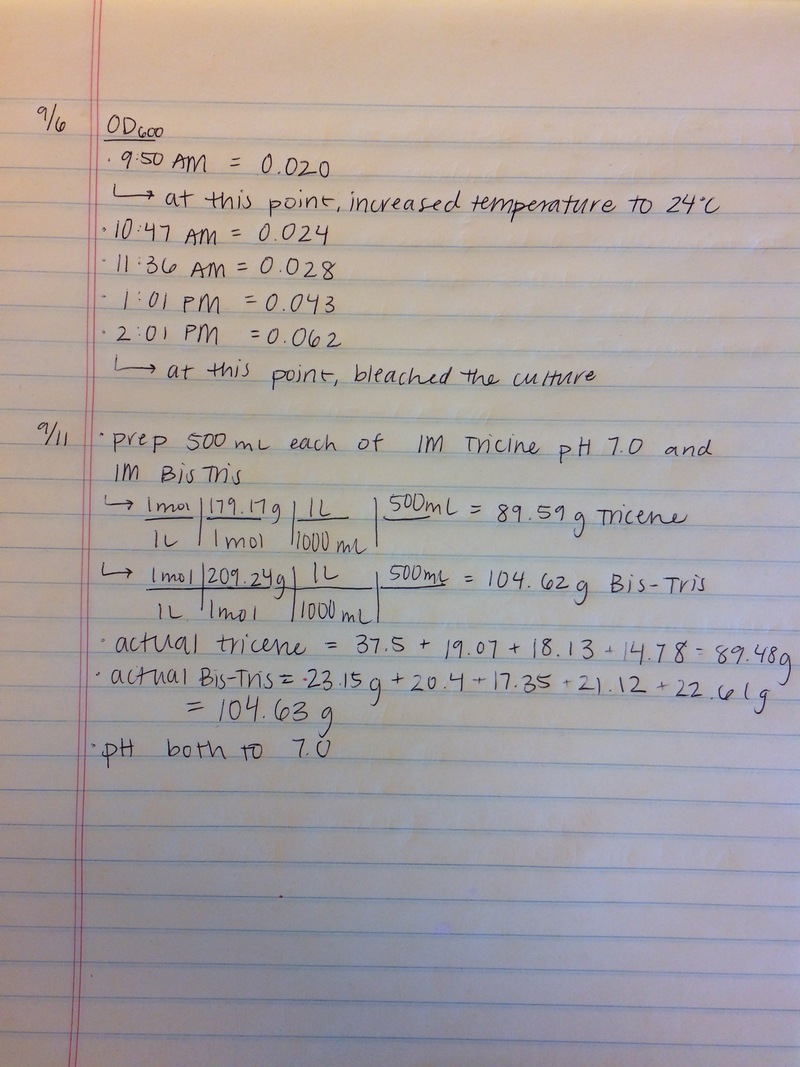 9/6 OD600
· 9:50 AM = 0.020
↳ at this point, increased temperature to 24°C
· 10:47 AM = 0.024
· 11:36 AM = 0.028
· 1:01 PM = 0.043
· 2:01 PM = 0.062
↳ at this point, bleached the culture
9/11 · prep 500 mL each of 1M Tricine pH 7.0 and
1M Bis Tris
↳ 1mol | 179.17g | 1L | 500mL = 89.59 g Tricene
1L | 1mol | 1000 mL
↳ 1mol | 209.24g | 1L | 500mL = 104.62 g Bis-Tris
1L | 1mol | 1000 mL
· actual tricene = 37.5 + 19.07 + 18.13 + 14.78 = 89.48g
· actual Bis-Tris = 23.15 g + 20.4 + 17.35 + 21.12 + 22.61g
= 104.63 g
· pH both to 7.0